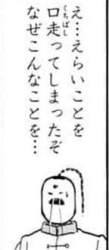 え…えらいことを
口走ってしまったぞ
くちばし
なぜこんなことを…